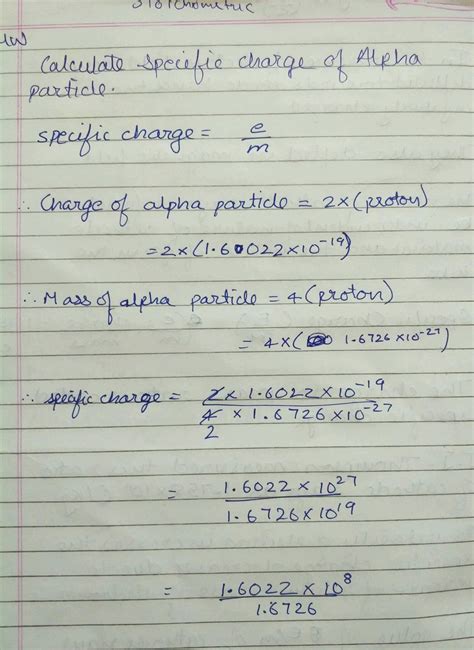 Stoichometric
HW
Calculate specific charge of Alpha
particle.
specific charge = e/m
∴ Charge of alpha particle = 2×(proton)
= 2×(1.60022×10⁻¹⁹)
∴ Mass of alpha particle = 4(proton)
= 4×( 1.6726×10⁻²⁷)
∴ specific charge = 2 × 1.6022 × 10⁻¹⁹
4 × 1.6726 × 10⁻²⁷
2
= 1.6022 × 10²⁷
1.6726 × 10¹⁹
= 1.6022 × 10⁸
1.6726